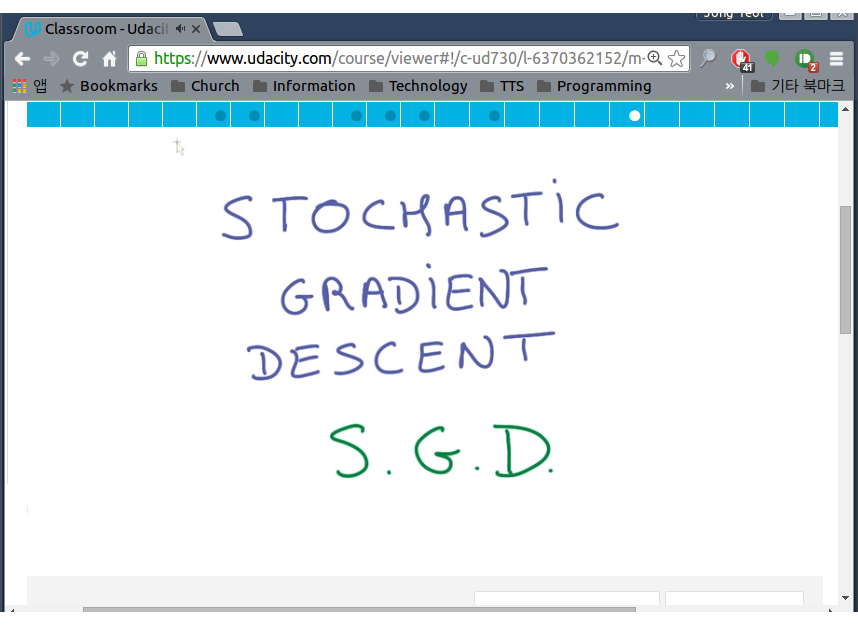 Jong Yeol
Classroom - Udaci
https://www.udacity.com/course/viewer#!/c-ud730/l-6370362152/m-
41
2
앱
Bookmarks
Church
Information
Technology
TTS
Programming
»
기타 북마크
STOCHASTIC
GRADIENT
DESCENT
S.G.D.